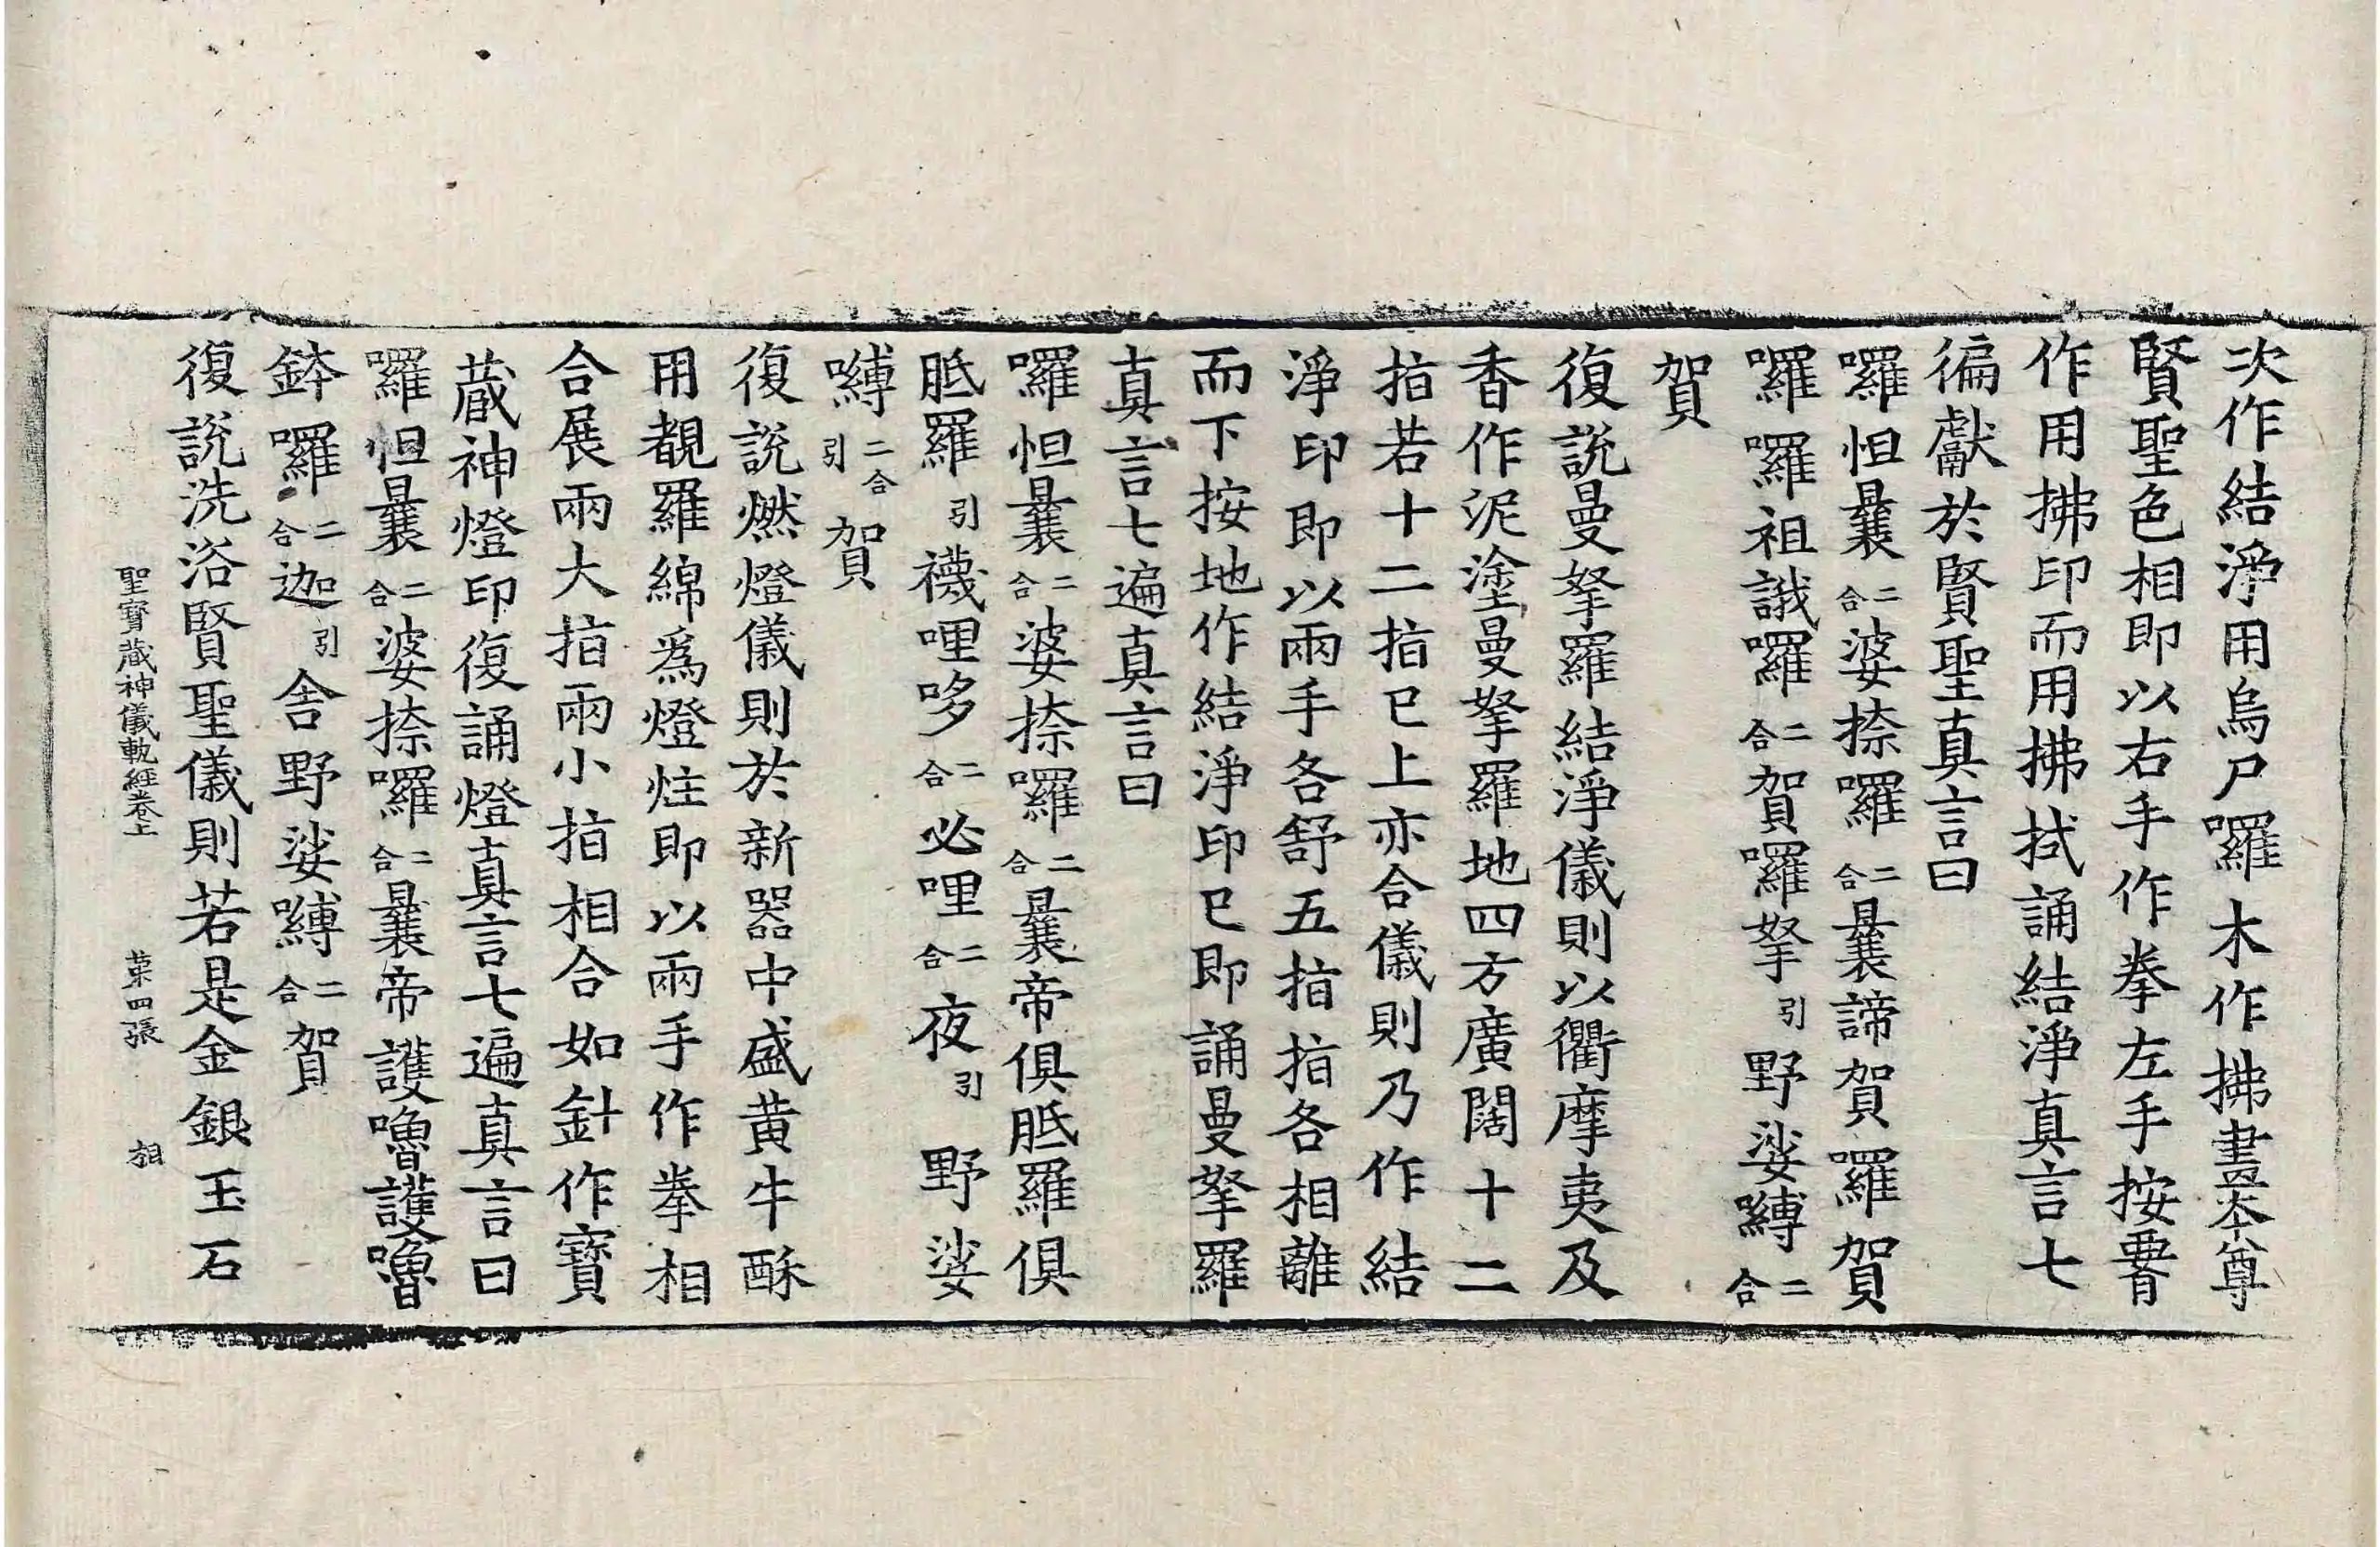 次作結淨用烏尸羅木作拂畫本尊
賢聖色相即以右手作拳左手按署
作用拂印而用拂拭誦結淨真言七
徧獻於賢聖真言曰
囉怛曩二合婆捺囉二合曩諦賀羅賀
囉囉祖誐囉二合賀囉拏引野娑嚩二合
賀
復說曼拏羅結淨儀則以衢摩夷及
香作泥塗曼拏羅地四方廣闊十二
指若十二指已上亦合儀則乃作結
淨印即以兩手各舒五指指各相離
而下按地作結淨印已即誦曼拏羅
真言七遍真言曰
囉怛曩二合婆捺囉二合曩帝俱胝羅俱
胝羅引襪哩哆二合必哩二合夜引野娑
嚩二合引賀
復說燃燈儀則於新器中盛黃牛酥
用覩羅綿爲燈炷即以兩手作拳相
合展兩大指兩小指相合如針作寶
藏神燈印復誦燈真言七遍真言曰
囉怛曩二合婆捺囉二合曩帝護嚕護嚕
鉢囉二合迦引舍野娑嚩二合賀
復說洗浴賢聖儀則若是金銀玉石
聖寶藏神儀軌經卷上 第四張 相